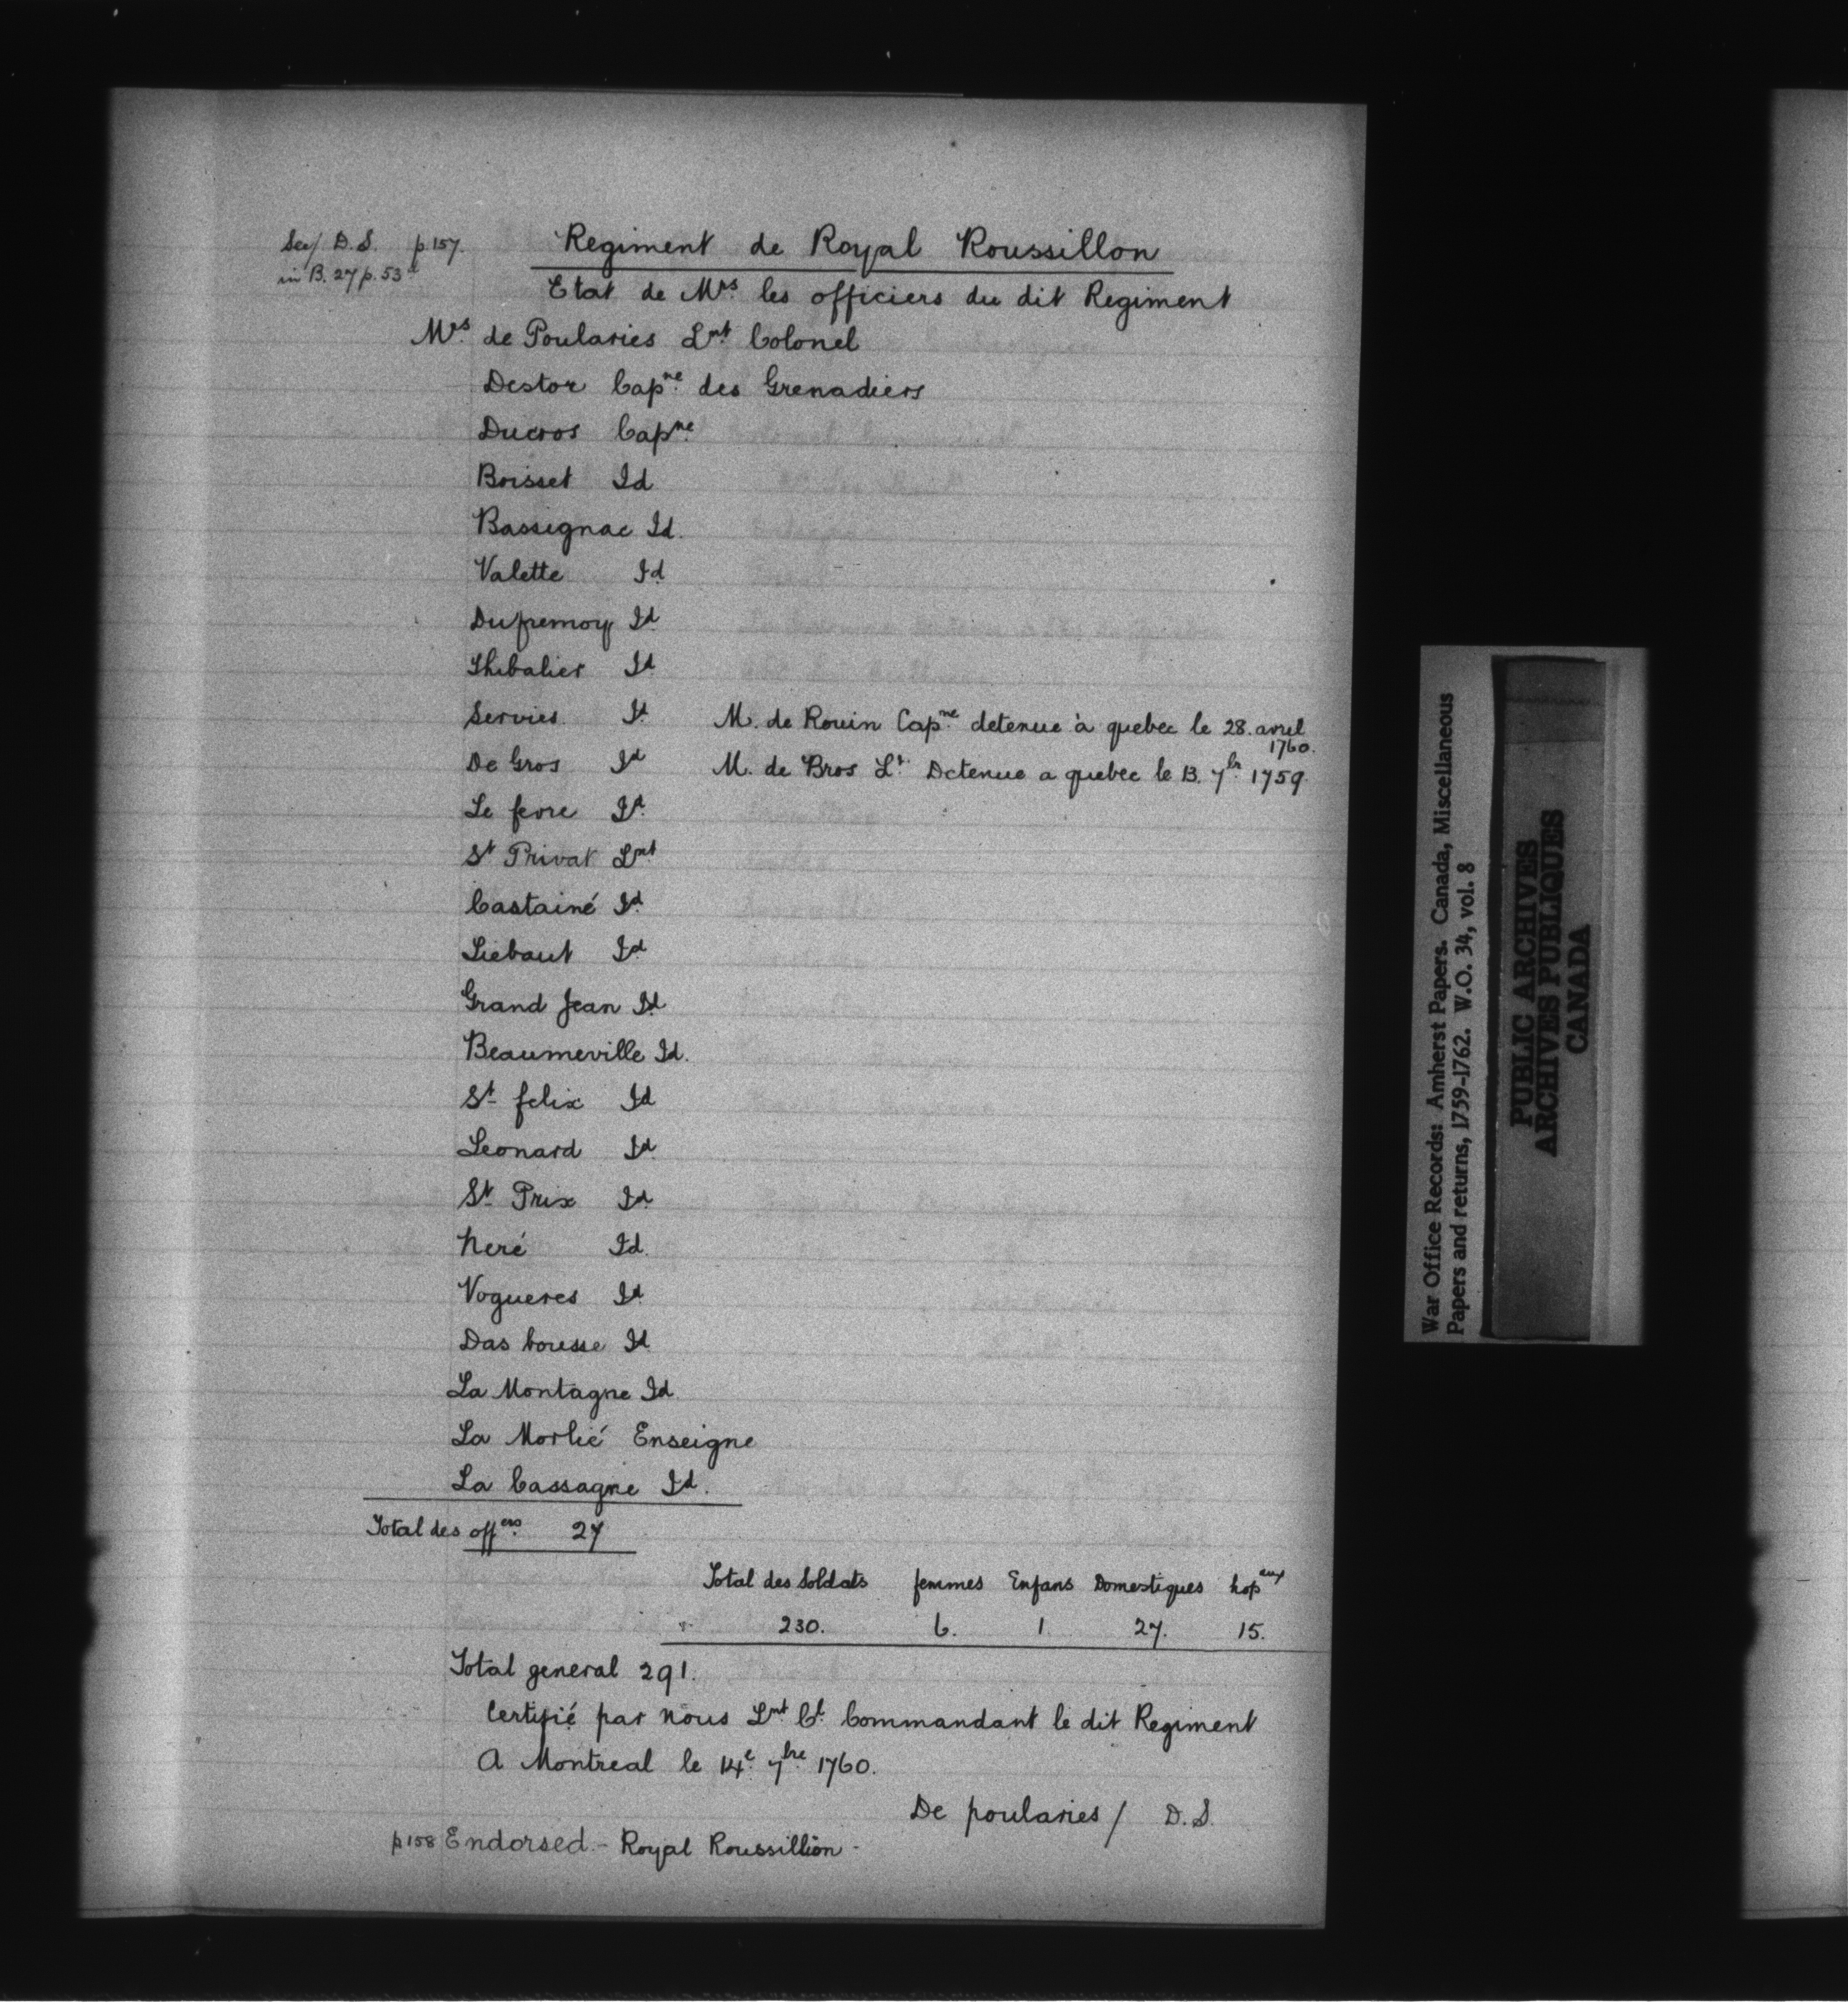 See/ D.S. p.157.
in B. 27 p. 53
Regiment de Royal Roussillon
Etat de Mrs. les officiers du dit Regiment
Mrs. de Poularies Lnt. Colonel
Destor Capne. des Grenadiers
Ducros Capne.
Boisset Id
Bassignac Id.
Valette Id
Dufremoy Id
Thibalier Id
Servies Id M. de Rouin Capne. detenue à quebec le 28. avril 1760.
De Gros Id M. de Bros Lt. Detenue a quebec le 13. 7br. 1759
Le fevre Id.
St Privat Lnt
Castainé Id
Liebaut Id
Grand Jean Id
Beaumeville Id.
St felix Id
Leonard Id
St Prix Id
Neré Id.
Vogueres Id
Das bousse Id
La Montagne Id
La Morlié Enseigne
La Cassagne Id.
Total des offers. 27
Total des Soldats femmes Enfans Domestiques hopaux
230. 6. 1 27. 15.
Total general 291.
Certifié par nous Lnt Cl. Commandant le dit Regiment
A Montreal le 14e. 7bre 1760.
De poularies / D.S.
p158 Endorsed - Royal Roussillion -
War Office Records: Amherst Papers. Canada, Miscellaneous
Papers and returns, 1759-1762. W.O. 34, vol. 8
PUBLIC ARCHIVES
ARCHIVES PUBLIQUES
CANADA